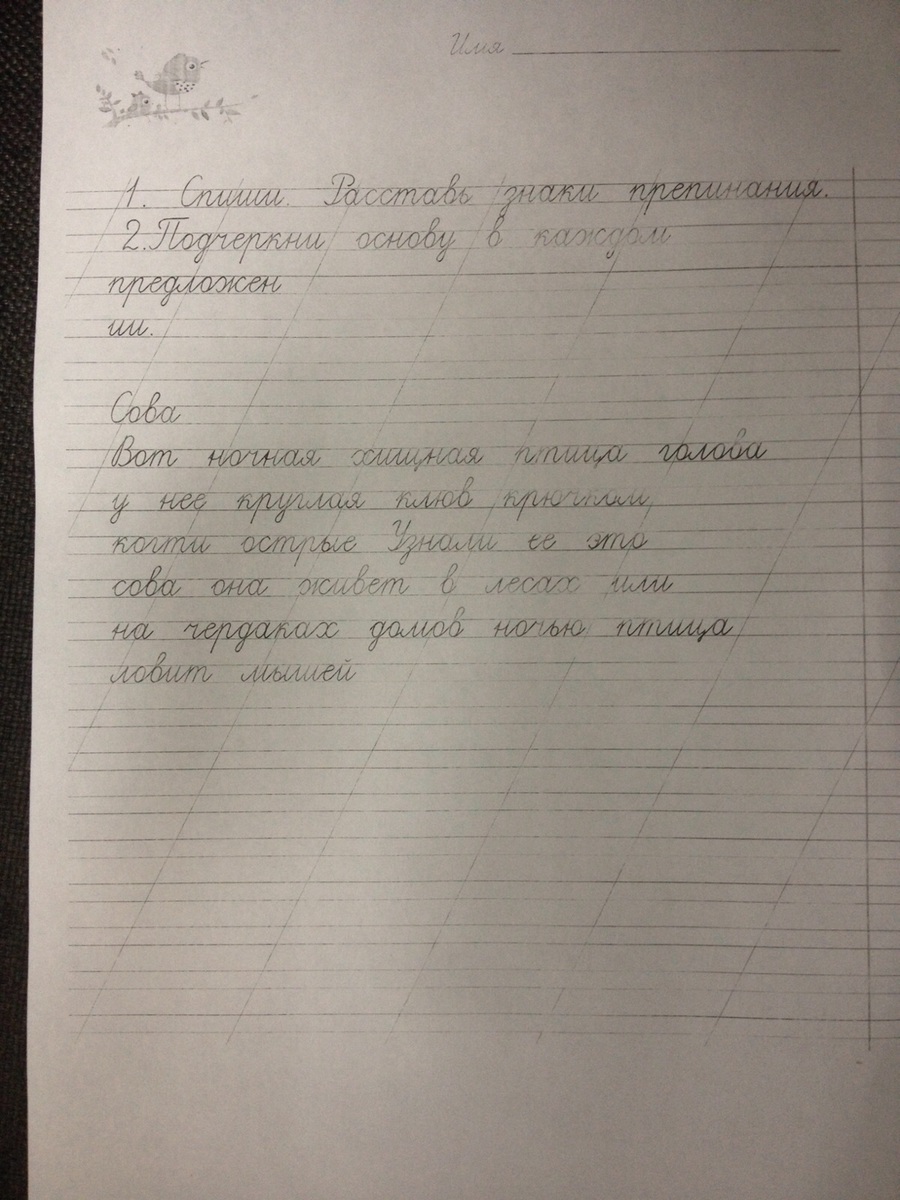 Имя
1. Спиши. Расставь знаки препинания.
2. Подчеркни основу в каждом
предложен
ии.
Сова
Вот ночная хищная птица голова
у нее круглая клюв крючком
когти острые Узнали ее это
сова она живет в лесах или
на чердаках домов ночью птица
ловит мышей